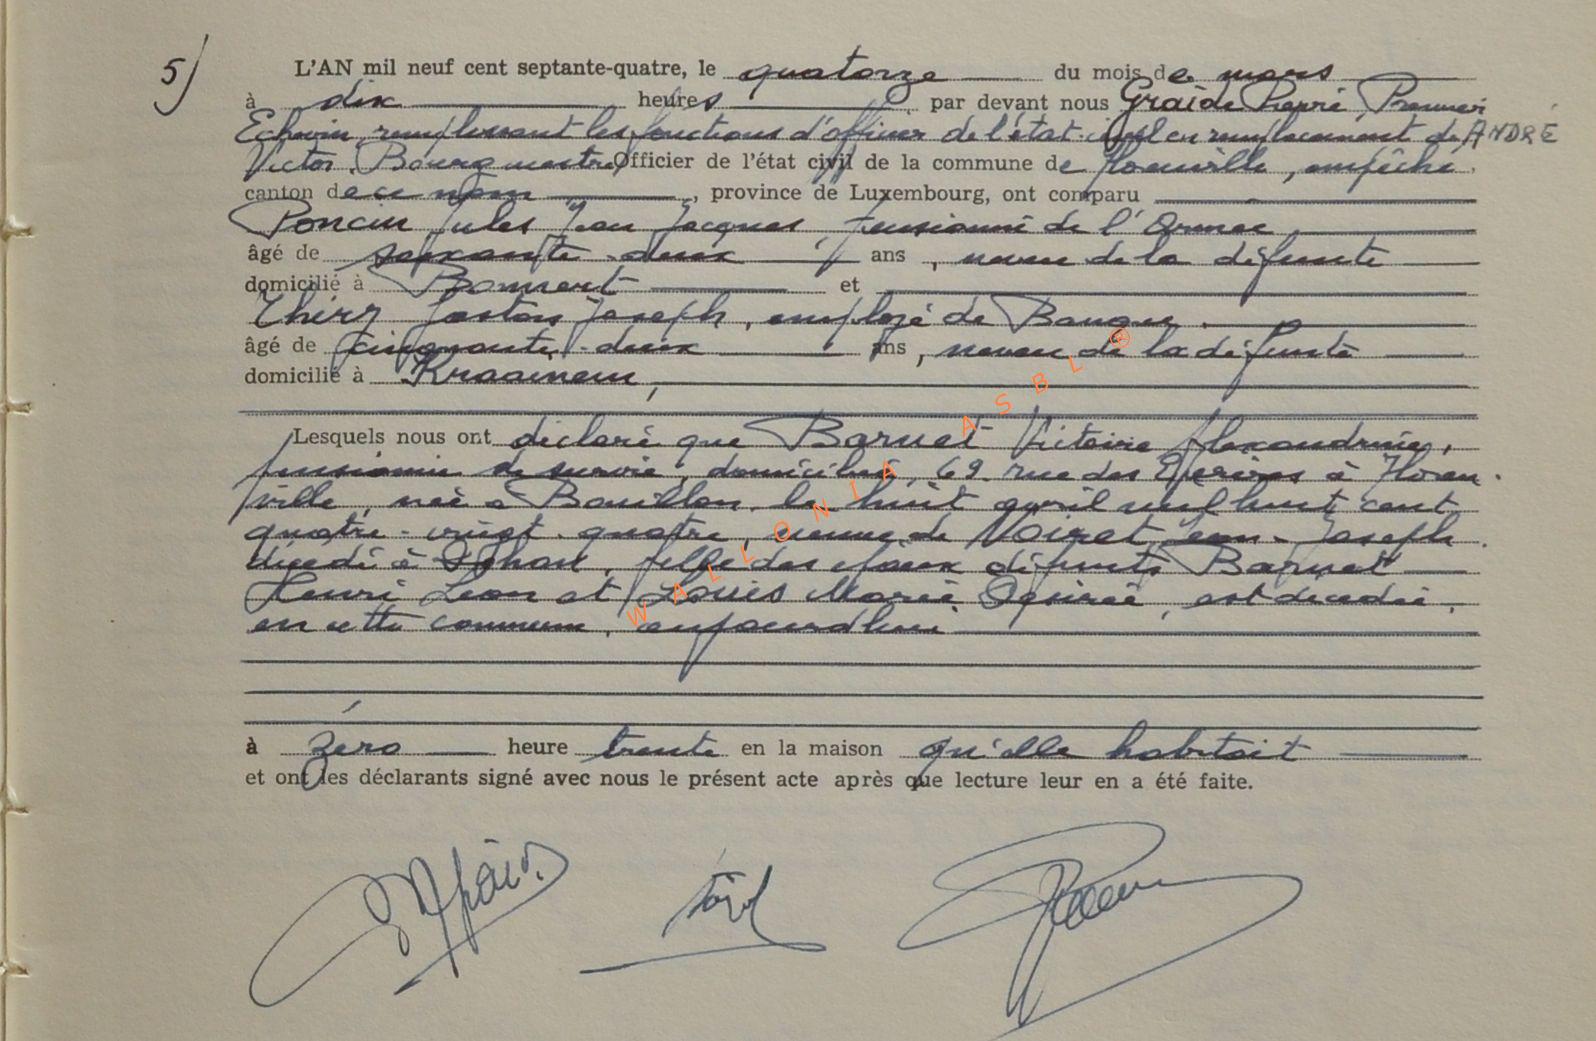 5)
L'AN mil neuf cent septante-quatre, le quatorze du mois de mars
à dix heures par devant nous Graide Pierre, Premier
Echevin remplissant les fonctions d'officier de l'état civil en remplacement de ANDRÉ
Victor Bourgmestre, Officier de l'état civil de la commune de Florenville, empêché,
canton de ce nom, province de Luxembourg, ont comparu
Poncin Jules Jean Jacques, pensionné de l'Armée
âgé de soixante-deux ans, neveu de la défunte
domicilié à et
Thiry Gaston Joseph, employé de Banque.
âgé de cinquante-deux ans, neveu de la défunte
domicilié à Kraainem,
Lesquels nous ont déclaré que Barnet Victoire Alexandrine,
pensionnée de survie, domiciliée, 69 rue des Epérires à Floren-
ville, née à Bouillon le huit avril mil huit cent
quatre-vingt-quatre, veuve de Noiret Jean-Joseph
décédé à fille des époux défunts Barnet
Henri Léon et Louis Marie Désirée, est décédée,
en cette commune, aujourd'hui
à zéro heure trente en la maison qu'elle habitait
et ont les déclarants signé avec nous le présent acte après que lecture leur en a été faite.
WALLONIA ASBL ®